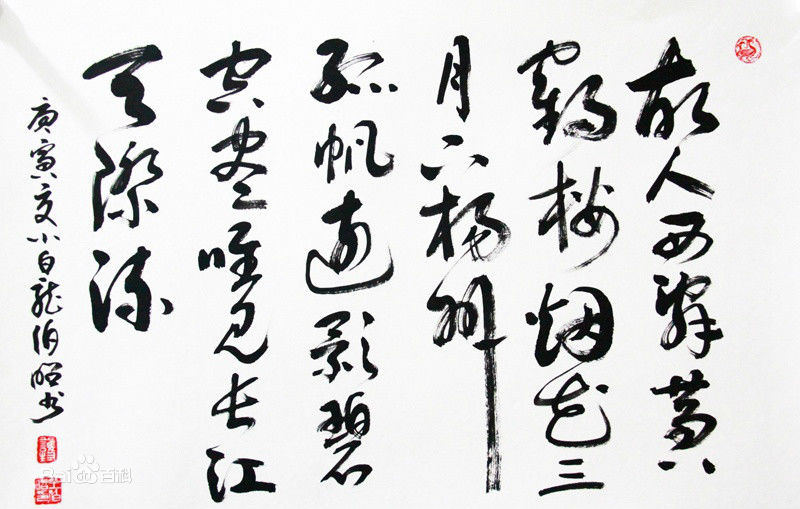 故人西辞黄
鹤楼烟花三
月下楊州
孤帆遠影碧
空尽唯见长江
天際流
庚寅夏小白龍伯昭书
Baidu百科